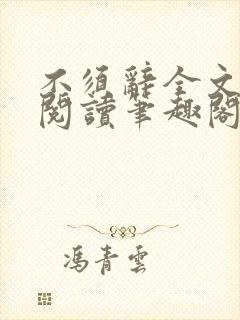 不須辭全文
閱讀筆趣閣
馮青雲